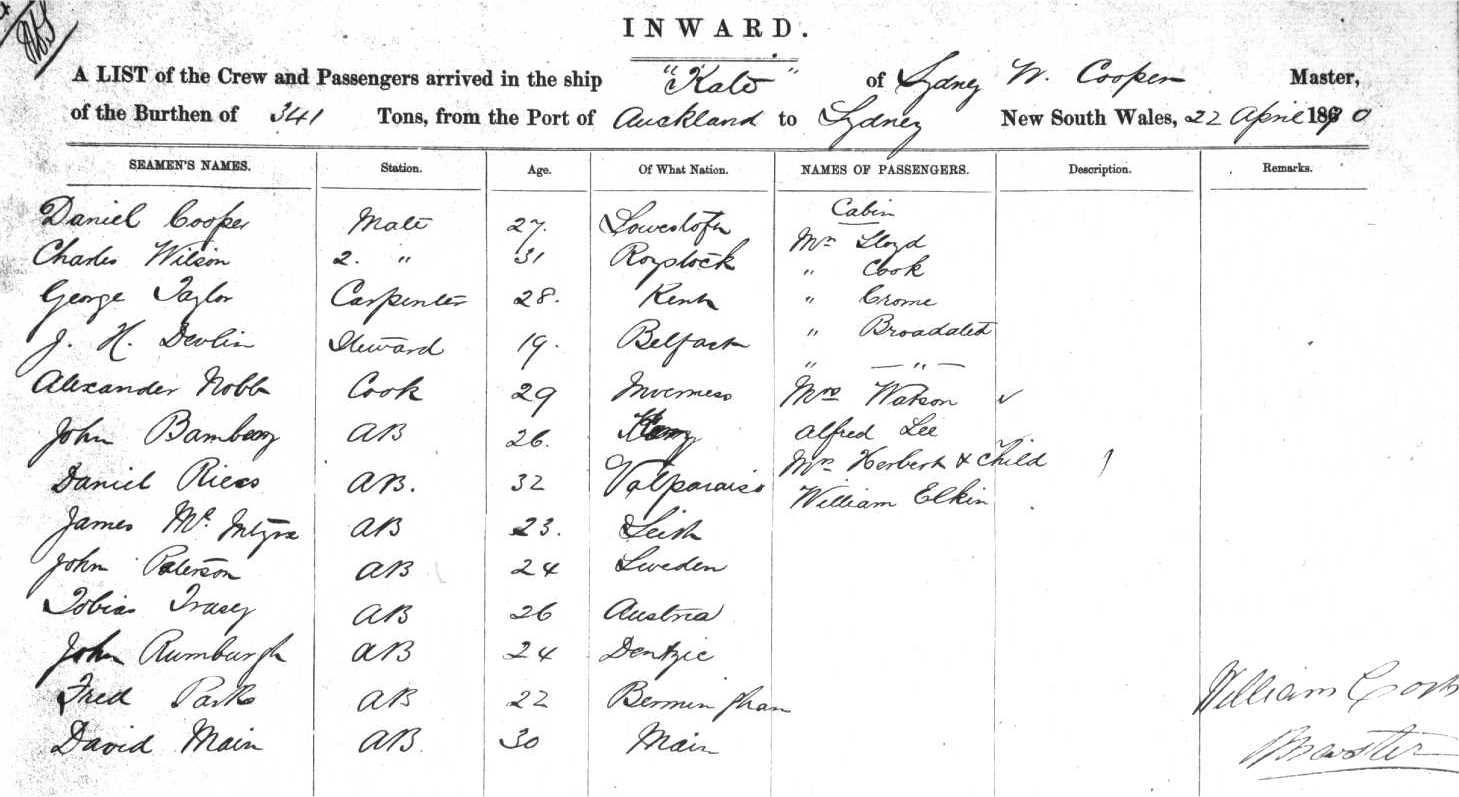 INWARD.
A LIST of the Crew and Passengers arrived in the ship "Kate" of Sydney W. Cooper Master,
of the Burthen of 341 Tons, from the Port of Auckland to Sydney New South Wales, 22 April 1870
SEAMEN'S NAMES. Station. Age. Of What Nation. NAMES OF PASSENGERS. Description. Remarks.
Cabin
Daniel Cooper Mate 27. Lowestoft Mr Lloyd
Charles Wilson 2. " 31 " Cook
George Taylor Carpenter 28. Kent " Crome
J. H. Devlin Steward 19. Belfast " Broadated
" — " —
Alexander Nobb Cook 29 Inverness Mrs Watson ✓
John AB 26. Alfred Lee
Mr Herbert & Child
Daniel AB. 32 Valparaiso William Elkin
James Mc Intyre AB 23. Leith
John Paterson AB 24 Sweden
Tobias Trasey AB 26 Austria
John Rumburgh AB 24 Dentzic
Fred Park AB 22 Bermingham
David Main AB. 30 Main
William
Master